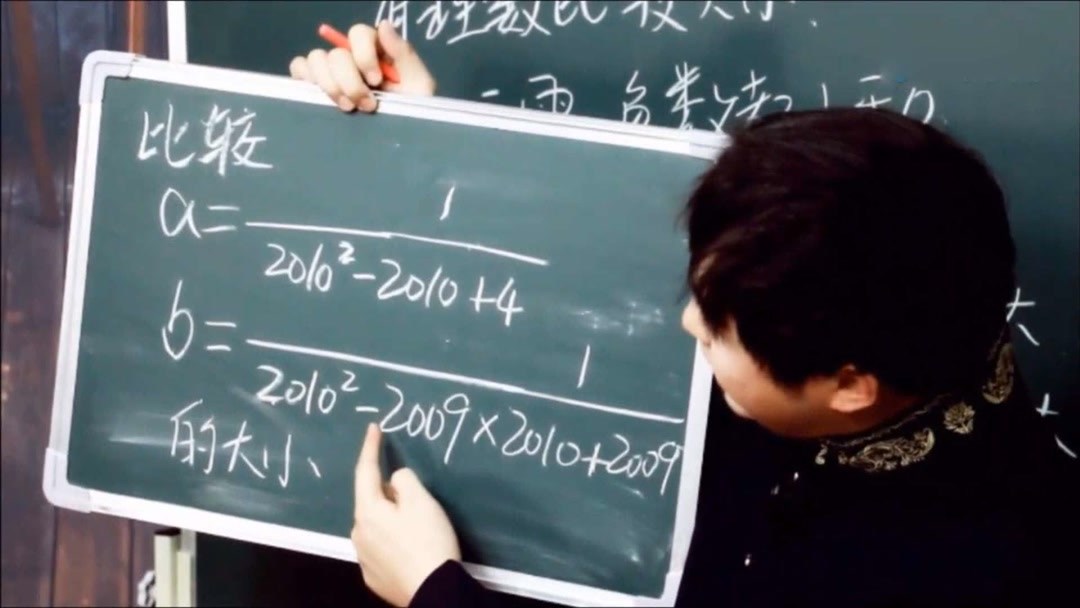 有理数比较大小
两负数
比较
a=1/(2010²-2010+4)
b=1/(2010²-2009×2010+2009)
的大小
大